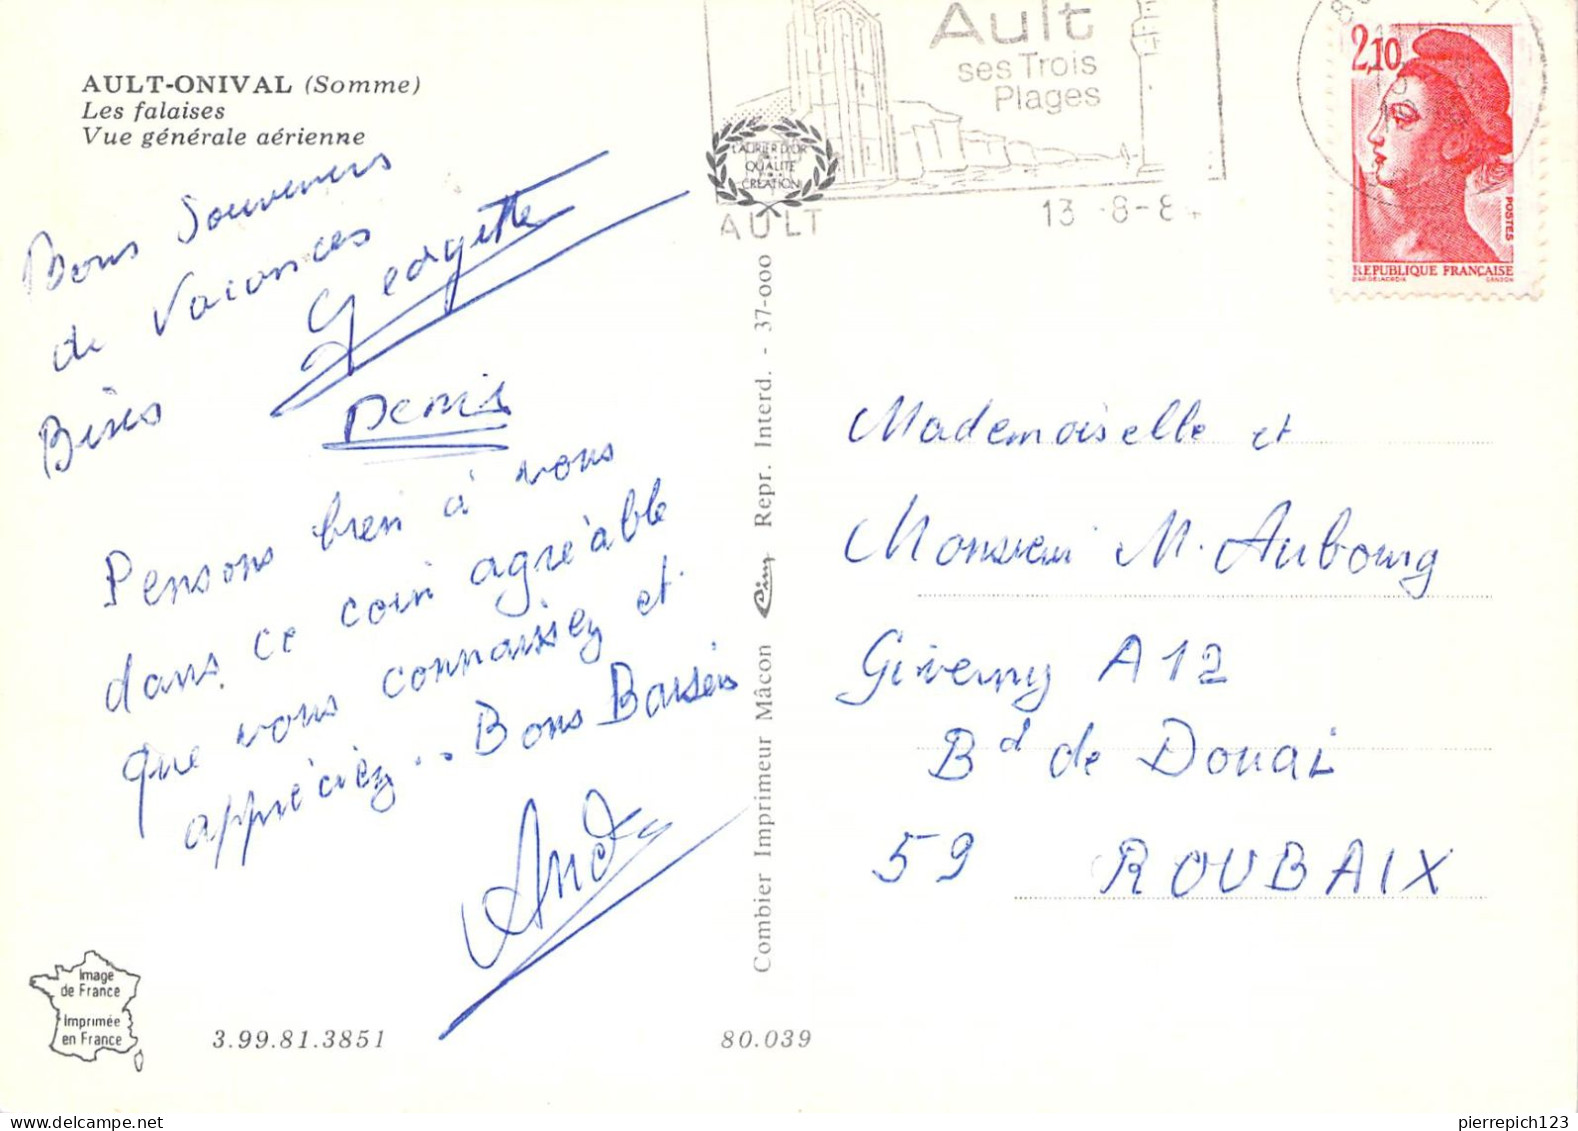 AULT-ONIVAL (Somme)
Les falaises
Vue générale aérienne
Bons Souvenirs
de Vacances
Bises
Georgette
Denis
Pensons bien à vous
dans ce coin agréable
que vous connaissez et
appréciez.. Bons Baisers
André
Image
de France
Imprimée
en France
3.99.81.3851
80.039
Combier Imprimeur Mâcon Cim Repr. Interd. - 37-000
Ault
ses Trois
Plages
LAURIER D'OR
QUALITÉ
CRÉATION
AULT
13 -8-8
2,10
POSTES
REPUBLIQUE FRANÇAISE
Mademoiselle et
Monsieur M. Aubourg
Giverny A12
Bd de Douai
59 ROUBAIX
pierrepich123